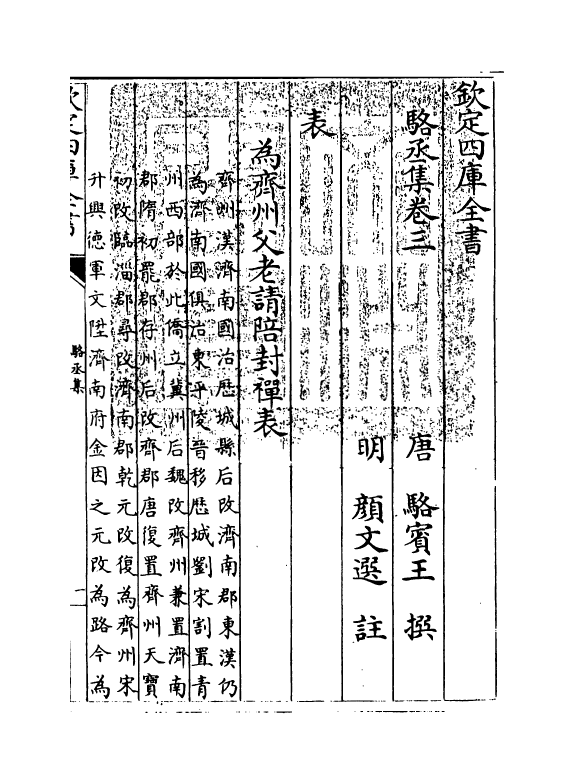 欽定四庫全書
駱丞集卷三
唐 駱賓王 撰
明 顏文選 註
表
為齊州父老請陪封禪表
齊州漢濟南國治歷城縣后改濟南郡東漢仍
為濟南國俱治東平陵晉移歷城劉宋割置青
州西部於此僑立冀州后魏改齊州兼置濟南
郡隋初罷郡存州后改齊郡唐復置齊州天寶
初改臨淄郡尋改濟南郡乾元改復為齊州宋
升興徳軍文陞濟南府金因之元改為路今為
欽定四庫全書
駱丞集